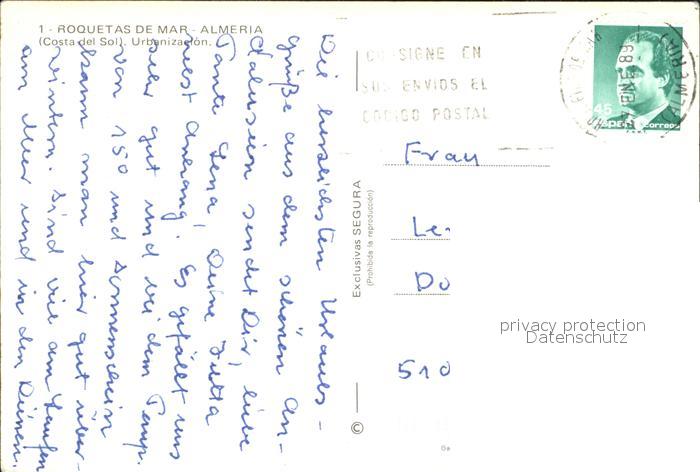 1 - ROQUETAS DE MAR - ALMERIA
(Costa del Sol). Urbanización.
Die herzlichsten Urlaubs-
grüße aus dem schönen An-
dalusien sendet Dir, liebe
Tante Lena, Deine Jutta
nebst Anhang. Es gefällt uns
sehr gut und bei dem Temp.
von 15° und Sonnenschein
kann man hier gut über-
wintern. Sind viel am Laufen
am Meer und in den Dünen.
Exclusivas SEGURA
(Prohibida la reproducción)
©
CONSIGNE EN
SUS ENVIOS EL
CODIGO POSTAL
45
España correos
Frau
Le
Do
510
privacy protection
Datenschutz